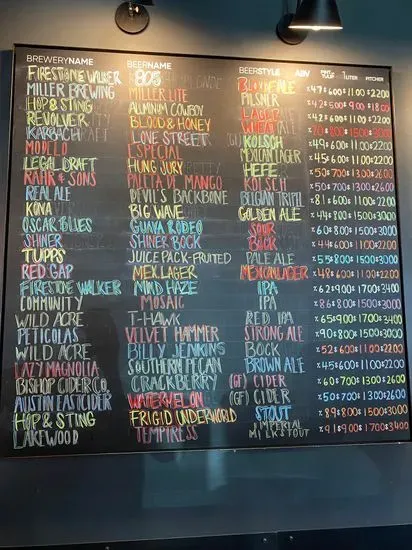 BREWERYNAME BEERNAME BEERSTYLE ABV 1LITER PITCHER
FIRESTONE WALKER 805 BLONDE ALE 600 1100 2200
MILLER BREWING MILLER LITE PILSNER 500 900 1800
HOP & STING ALUMINUM COWBOY LAGER 600 1100 2200
REVOLVER BLOOD & HONEY WHEAT 800 1500 3000
KARBACH LOVE STREET KOLSCH 600 1100 2200
MODELO ESPECIAL MEXICAN LAGER 600 1100 2200
LEGAL DRAFT HUNG JURY HEFE 700 1300 2600
RAHR & SONS PALETA DE MANGO KOLSCH 700 1300 2600
REAL ALE DEVIL'S BACKBONE BELGIAN TRIPEL 600 1100 2200
KONA BIG WAVE GOLDEN ALE 800 1500 3000
OSCAR BLUES GUAVA RODEO SOUR 800 1500 3000
SHINER SHINER BOCK BOCK 600 1100 2200
TUPPS JUICE PACK-FRUITED PALE ALE 800 1500 3000
RED GAP MEX LAGER MEXICAN LAGER 600 1100 2200
FIRESTONE WALKER MIND HAZE IPA 900 1700 3400
COMMUNITY MOSAIC IPA 800 1500 3000
WILD ACRE T-HAWK RED IPA 900 1700 3400
PETICOLAS VELVET HAMMER STRONG ALE 800 1500 3000
WILD ACRE BILLY JENKINS BOCK 600 1100 2200
LAZY MAGNOLIA SOUTHERN PECAN BROWN ALE 600 1100 2200
BISHOP CIDER CO. CRACKBERRY (GF) CIDER 700 1300 2600
AUSTIN EASTCIDER WATERMELON (GF) CIDER 700 1300 2600
HOP & STING FRIGID UNDERWORLD STOUT 800 1500 3000
LAKEWOOD TEMPTRESS IMPERIAL MILK STOUT 900 1700 3400